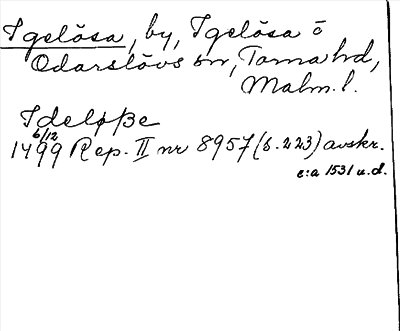 Igelösa, by, Igelösa o
Odarslövs sn, Torna hd,
Malm. l.
Ideløsse
6/12
1499 Rep. II nr 8957 (s. 223) avskr.
c:a 1531 u.d.